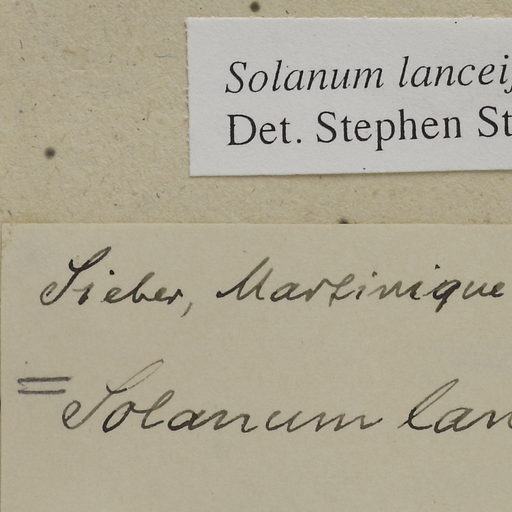 Solanum lanceif
Det. Stephen St
Sieber, Martinique
= Solanum lan